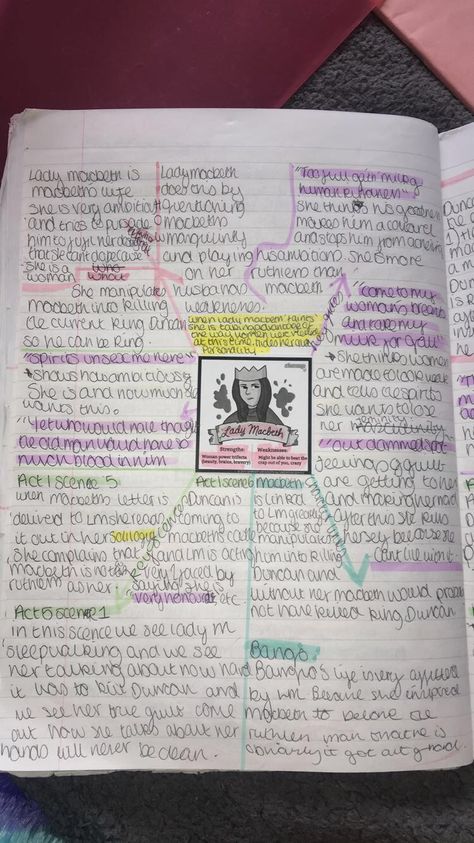 Lady macbeth is
macbeths wife
she is very ambitious
and tries to
him to fulfil her
that she can't
She is a
woman
She manipulates
macbeth into killing
the current king Duncan
so he can be king
Lady macbeth
does this by
questioning
macbeths
manguinity
and playing
on her
husbands
weaknesses
"Too full o'ath milk of
human kindness"
she thinks his goodness
makes him a coward
and stops him from achieving
his ambition she is more
ruthless than
macbeth
when lady macbeth faints
she is taking advantage of
the way women were treated
at this time, hides her true
personality
"Come to my
womans breasts
and take my
milk for gall"
she thinks women
are made to look weak
and tells spirits
she want to lose
her
"spirits unsex me here"
shows how ambitious
she is and how much she
wants this.
"Yet who would have thought
the old man would have so
much blood in him"
Lady Macbeth
Strengths:
Woman power trifecta
(beauty, brains, bravery)
Weaknesses:
Might be able to beat the
crap out of you, crazy
"out damned spot"
Seeing guilt
are getting to her
and making her mad
after this she kills
herself because she
can't live with it.
Act 1 scene 5
when macbeths letter is
delivered to LM she reads
it out in her soliloquy
she complains that
macbeth is not as
ruthless as her
Act 1 scene 6
Duncan is
coming to
macbeths castle
and LM is acting
very
saying she is
very honoured etc
key scenes
macbeth
is linked
to LM greatly
because she
manipulates
him into killing
Duncan and
without her macbeth would probs
not have killed king Duncan
Act 5 scene 1
In this scence we see lady m
sleepwalking and we see
her talking about how hard
it was to kill Duncan and
we see her true guilt come
out how she talks about her
hands will never be clean.
Banqo
Banqho's life is very affected
by LM Because she
macbeth to become the
ruthless man that he is